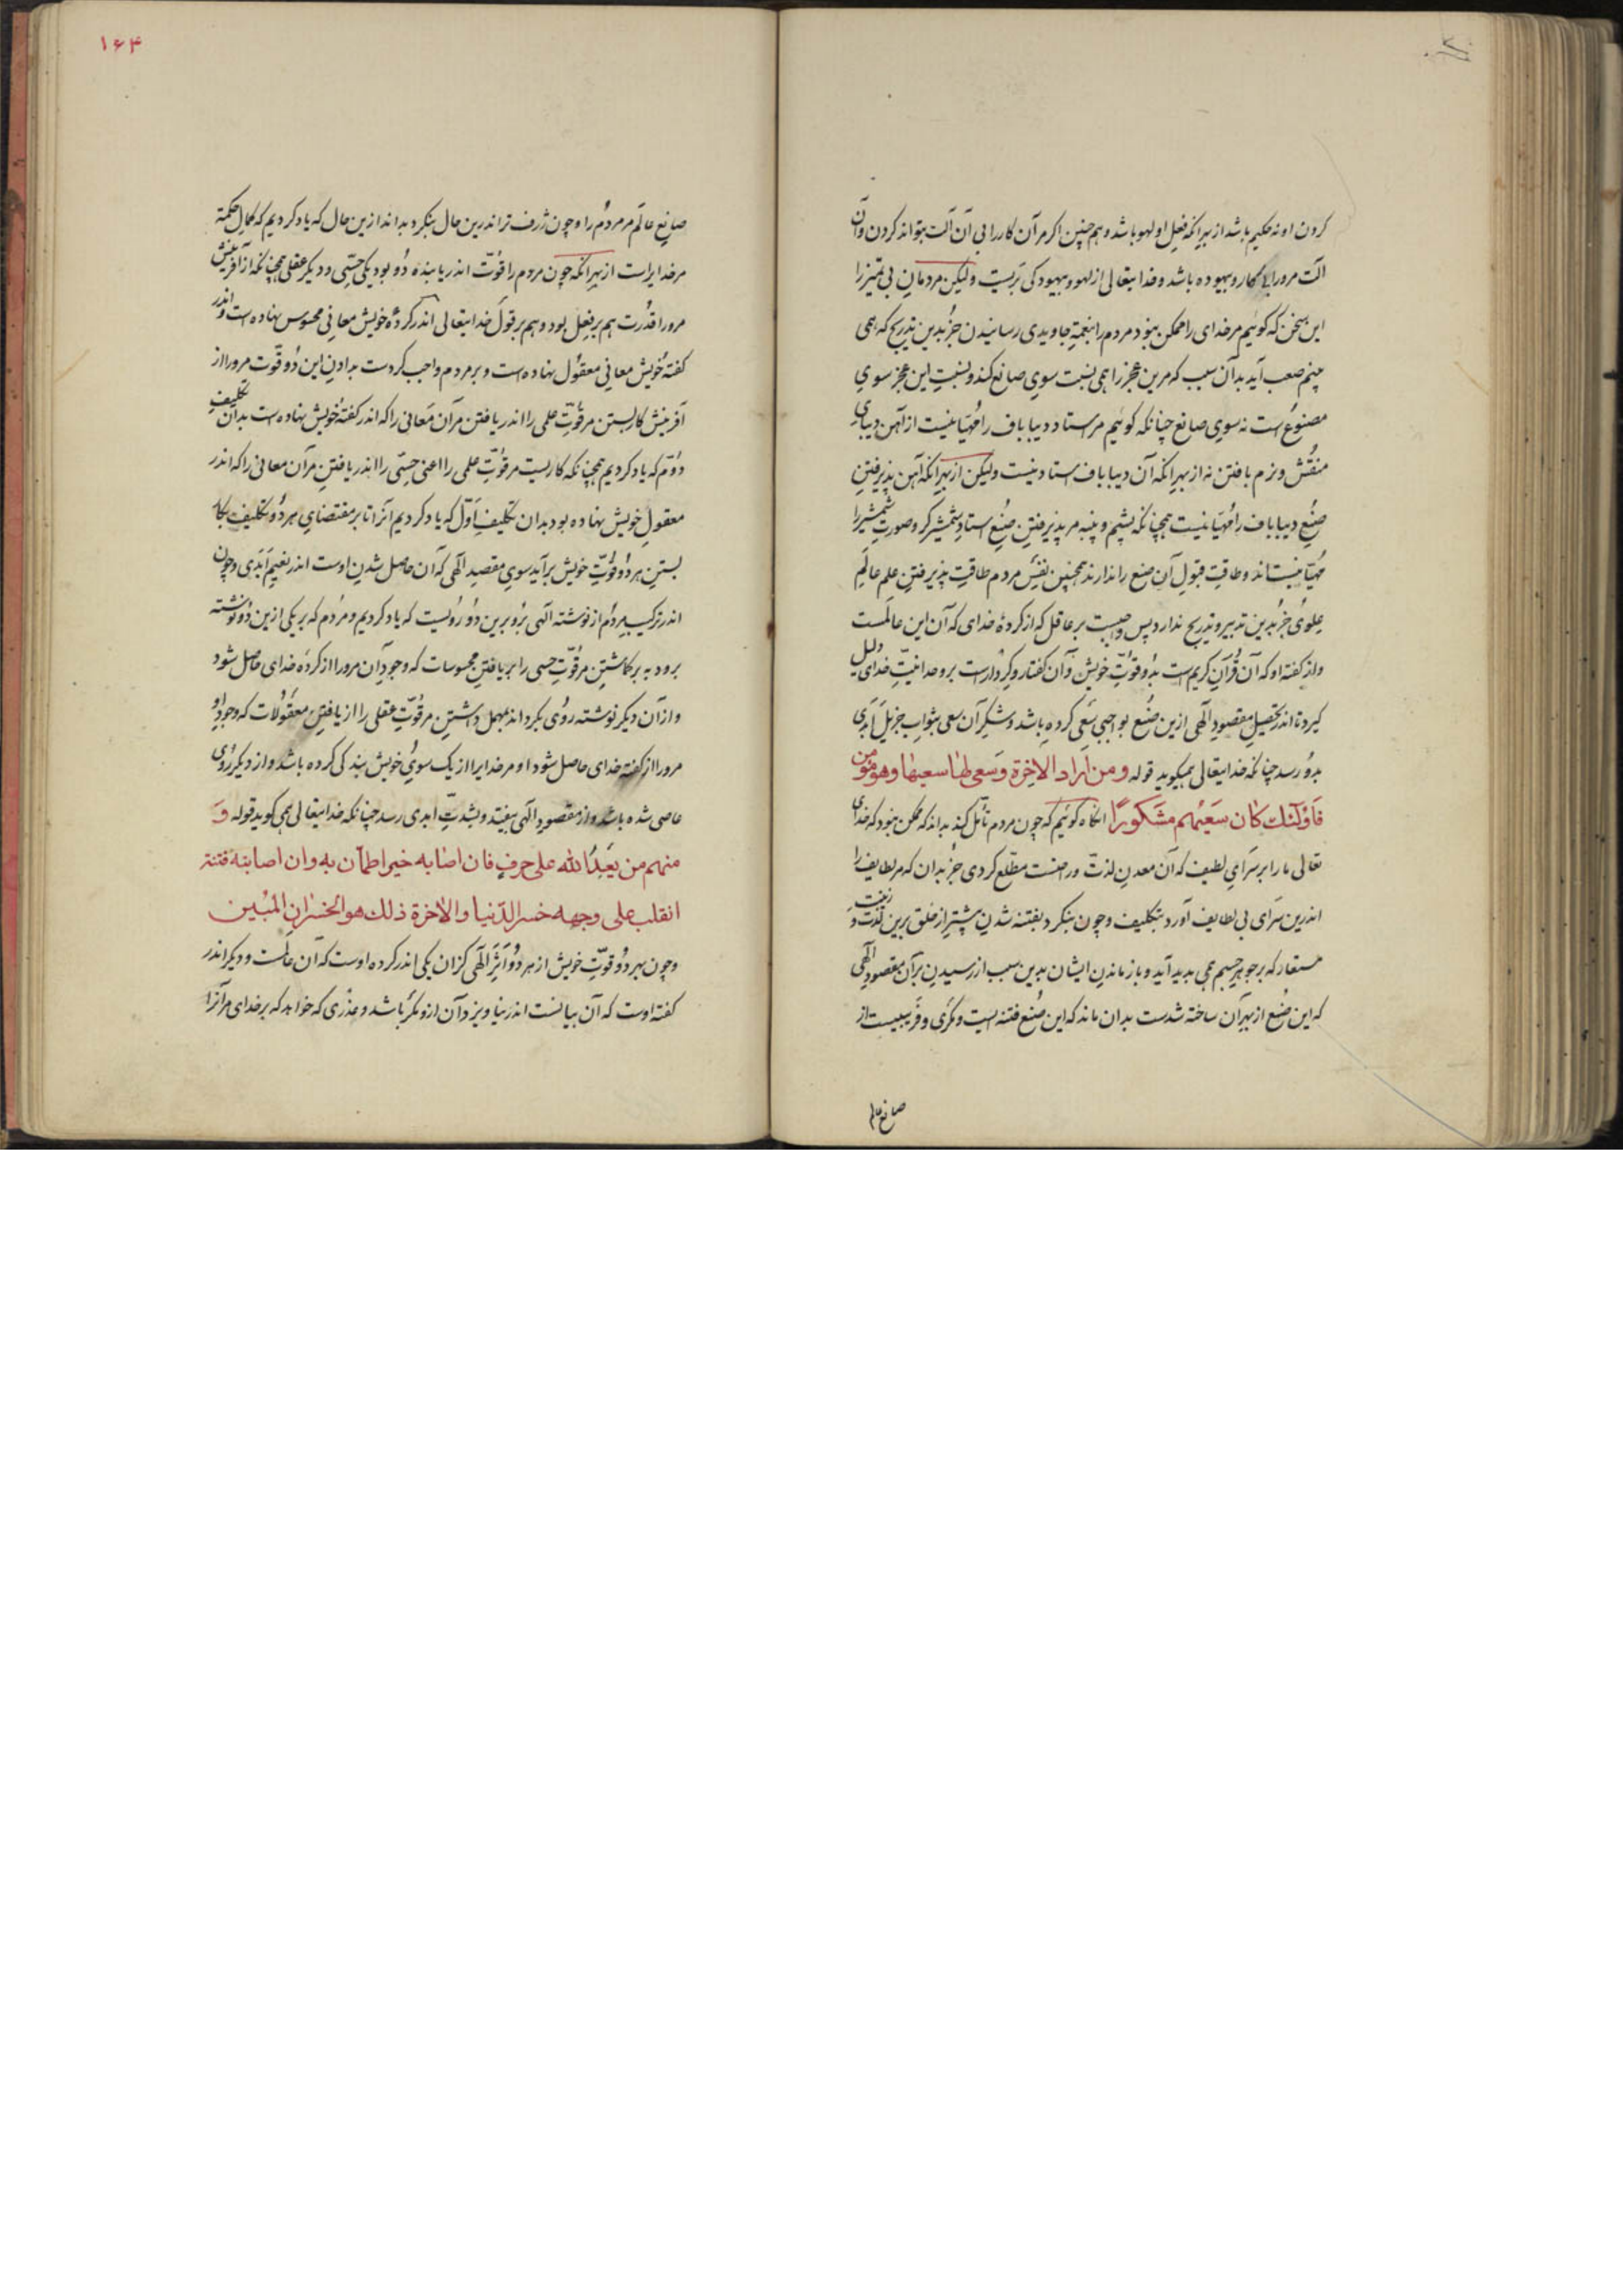 کردن او نه حکیم باشد از بهر آنکه فعل او لهو باشد و هم چنین اگر مر آن کار را بی آن آلت بتواند کردن و آن
آلت مرو را بکار و بیهوده باشد و خدایتعالی از لهو و بیهودگی بریست ولیکن مردمان بی تمیز را
این سخن که گوئیم مر خدای را ممکن نبود مردم را بنعمت جاویدی رسانیدن جز بدین تدریج که همی
بینم صعب آید بدان سبب که مرین عجز را همی نسبت سوی صانع کند و نسبت این عجز سوی
مصنوع است نه سوی صانع چنانکه گوئیم مر استاد دیبا باف را مهیا نیست از آهن دیبای
منقش و نرم بافتن نه از بهر آنکه آن دیبا باف استاد نیست ولیکن از بهر آنکه آهن پذیرفتن
صنع دیبا باف را مهیا نیست همچنانکه پشم و پنبه مر پذیرفتن صنع استاد شمشیرگر و صورت شمشیر را
مهیا نیستاند و طاقت قبول آن صنع را ندارند همچنین نفس مردم طاقت پذیرفتن علم عالم
علوی جز بدین تدبیر و تدریج ندارد پس واجبست بر عاقل که از کردهٔ خدای که آن این عالمست
و از گفته او که آن قرآن کریم است بدو قوت خویش و آن گفتار و کردارست بر وحدانیت خدای دلیل
گیرد تا اندر تحصیل مقصود الهی ازین صنع بواجبی سعی کرده باشد و شکر آن سعی بثواب جزیل ابدی
بدو رسد چنانکه خدایتعالی همیگوید قوله ومن اراد الاخرة وسعی لها سعیها وهو مومن
فاولئک کان سعیهم مشکورا آنگاه گوئیم که چون مردم تأمل کند بداند که ممکن نبود که خدای
تعالی ما را بر سرای لطیف که آن معدن لذت و راحتست مطلع کردی جز بدان که مر لطایف را
اندرین سرای بی لطایف آورد بتکلیف و چون بنگرد بفتنه شدن بیشتر از خلق برین لذت و زینت
مستعار که بر جوهر جسم همی پدید آید و باز ماندن ایشان بدین سبب از رسیدن بر آن مقصود الهی
که این صنع از بهر آن ساخته شدست بدان ماند که این صنع فتنه ایست و مکری و فریبیست از
صانع عالم
۱۶۴
صانع عالم مر مردم را و چون ژرف تر اندرین حال بنگرد بداند ازین حال که یاد کردیم که کمال حکمة
مر خدایراست از بهر آنکه چون مردم را قوت اندر یابنده دو بود یکی حسی و دیگر عقلی همچنانکه از آفرینش
مرو را قدرت هم بر فعل بود و هم بر قول خدایتعالی اندر کردهٔ خویش معانی محسوس نهاده است و اندر
گفتهٔ خویش معانی معقول نهاده است و بر مردم واجب کردست بدادن این دو قوت مرو را از
آفرینش کار بستن مر قوت علمی را اندر یافتن مر آن معانی را که اندر گفتهٔ خویش نهاده است بدان تکلیف
دوم که یاد کردیم همچنانکه کار بست مر قوت علمی را اعنی حسی را اندر یافتن مر آن معانی را که اندر
معقول خویش نهاده بود بدان تکلیف اول که یاد کردیم آنرا تا بر مقتضای هر دو تکلیف بکار
بستن هر دو قوت خویش برآید سوی مقصد الهی که آن حاصل شدن اوست اندر نعیم ابدی و چون
اندر ترکیب مردم از نوشته الهی برو برین دو رویست که یاد کردیم و مردم که بر یکی ازین دو نوشته
برود به بر گماشتن مر قوت حسی را بر یافتن محسوسات که وجود آن مرو را از کردهٔ خدای حاصل شود
و از آن دیگر نوشته روی بگرداند بمهمل داشتن مر قوت عقلی را از یافتن معقولات که وجود او
مرو را از گفته خدای حاصل شود او مر خدایرا از یک سوی خویش بندگی کرده باشد و از دیگر روی
عاصی شده باشد و از مقصود الهی بیفتد و بشدت ابدی رسد چنانکه خدایتعالی همی گوید قوله و
منهم من یعبد الله علی حرف فان اصابه خیر اطمأن به وان اصابته فتنة
انقلب علی وجهه خسر الدنیا والاخرة ذلک هو الخسران المبین
و چون بهر دو قوت خویش از هر دو اثر الهی کزان یکی اندر کرده اوست که آن عالمست و دیگر اندر
گفته اوست که آن بیانست اندر نیاویزد آن ازو مکر باشد و عذری که خواهد که بر خدای مر آنرا